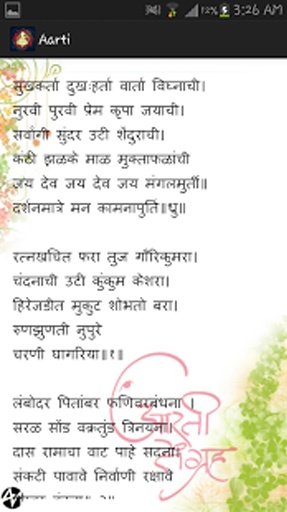 12% 3:26 AM
Aarti
सुखकर्ता दुखःहर्ता वार्ता विघ्नाची।
नुरवी पुरवी प्रेम कृपा जयाची।
सर्वांगी सुंदर उटी शेंदुराची।
कंठी झळके माळ मुक्ताफळांची
जय देव जय देव जय मंगलमुर्ती॥
दर्शनमात्रे मन कामनापुर्ति॥धृ॥
रत्नखचित फरा तुज गौरिकुमरा।
चंदनाची उटी कुंकुम केशरा।
हिरेजडीत मुकुट शोभतो बरा।
रुणझुणती नुपुरे
चरणी घागरिया॥१॥
लंबोदर पितांबर फणिवरबंधना ।
सरळ सोंड वक्रतुंड त्रिनयना।
दास रामाचा वाट पाहे सदना।
संकटी पावावे निर्वाणी रक्षावे
आरती संग्रह